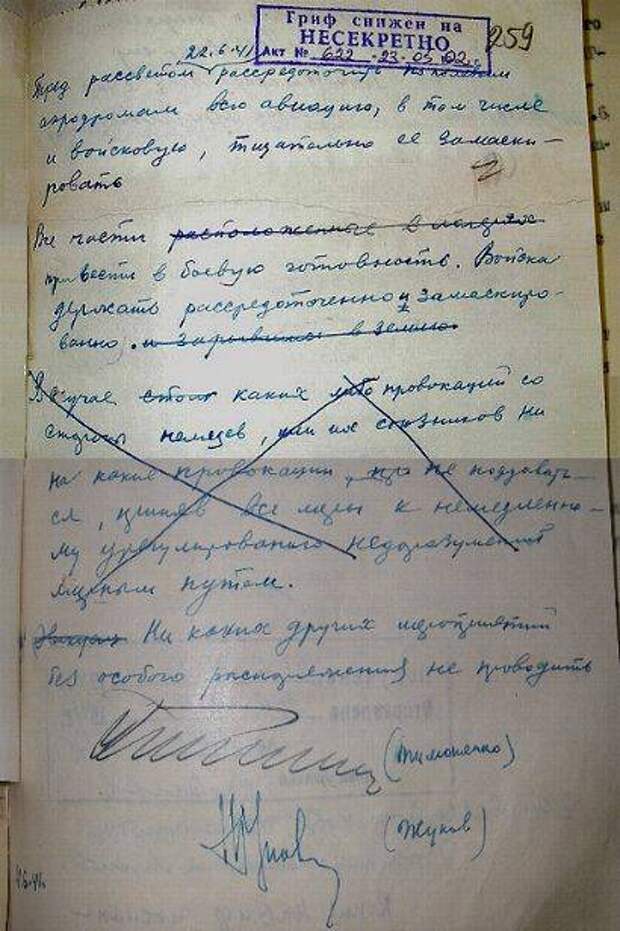 Гриф снижен на
НЕСЕКРЕТНО
Акт № 622 23.05.02 г.
259
22.6.41
Перед рассветом рассредоточить по полевым
аэродромам всю авиацию, в том числе
и войсковую, тщательно ее замаски-
ровать
Все части расположенные в лагерях
привести в боевую готовность. Войска
держать рассредоточенно и замаскиро-
ванно. и зарывшись в землю.
В случае каких либо провокаций со
стороны немцев, или их союзников ни
на какие провокации, не поддавать-
ся, приняв все меры к немедленно-
му урегулированию недоразумений
мирным путем.
Ни каких других мероприятий
без особого распоряжения не проводить
(Тимошенко)
(Жуков)